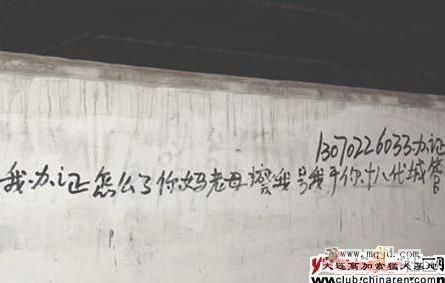 13070226033办证
我办证怎么了你妈老母擦我号我干你十八代城管
www.mqjd.com
大连高加索猛犬基地
club.chinaren.com